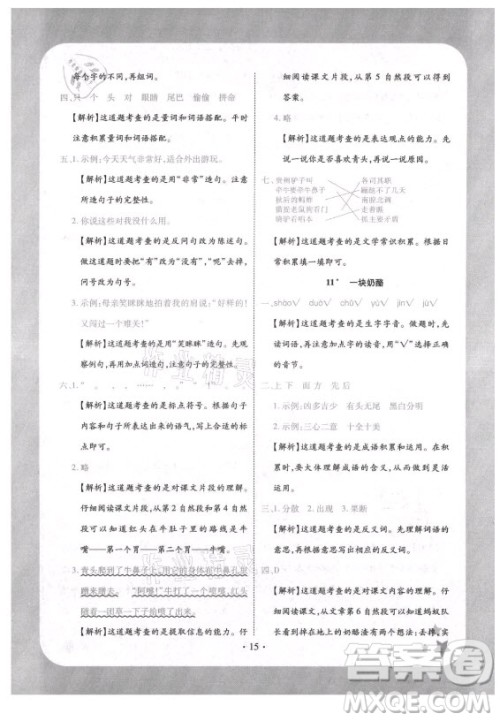 每个字的不同,再组词。
四、只 个 头 对 眼睛 尾巴 偷偷 拼命
【解析】这道题考查的是量词和词语搭配。平时
注意积累量词和词语搭配。
五、1. 示例:今天天气非常好,适合外出游玩。
【解析】这道题考查的是用“非常”造句。先
注意造句子的完整性。
2. 你说这些对我没什么用。
【解析】这道题考查的是反问句改为陈述句。
做这道题时,注意句子改写后,句子的意思不
能改变。
3. 示例:母亲笑眯眯地抬着我的肩说:“好样的!
又闯过了一个难关!”
【解析】这道题考查的是“笑眯眯”造句。先观
察例句,再写句子,注意句子的完整性。
六、1. “ , 。 …… , 。 ”
【解析】这道题考查的是标点符号。根据句子
内容,体会出要表达的语气,写出标点符号。
2. 略
【解析】这道题考查的是对课文片段的理解。
仔细阅读课文片段,从第 2 自然段和第 4 自
然段可以知道红头在牛肚子里的路线是牛
嘴——第一个胃——第二个胃——牛嘴。
3. 青头爬到了牛鼻子上,用它的身体在牛鼻孔里
蹭来蹭去。“阿嚏!”牛大吼一声,红头
随着一团草一下子给喷了出来。
【解析】这道题考查的是提取信息的能力。仔
细阅读课文片段,从第 5 自然段可以得到
答案。
4. 略
【解析】这道题考查的是表达观点的能力。无
所谓对错,说出你是否喜欢青头,再说明理由
即可。
七、贵州驴子叫 各司其职
牵牛要牵牛鼻子 蹦跶不了几天
秋后的蚂蚱 南腔北调
猫捉老鼠狗看门 走着瞧
骑驴看唱本 抓住要害
【解析】这道题考查的是文学常识积累。根据
积累填一填即可。
11* 一块奶酪
一、shào√ duó√ jù√ chǔ√ xī√
【解析】这道题考查的是生字字音。做题时,
注意读准加点字的读音,用“√”画出正确
的音节。
二、1. 上 下 面 方 先 后
2. 示例:凶多吉少 有头无尾 黑白分明
3. 示例:三心二意 十全十美
【解析】这道题考查的是成语积累。做题时,
要大体理解成语的意思,并注意积累成语。
三、1. 分散 2. 出现 3. 果断
【解析】这道题考查的是反义词。理解词语的
意思,写出反义词。
四、D
【解析】这道题考查的是对课文内容的理解。仔
细阅读课文,从文章第 6 自然段可以知道蚂蚁队
长对掉在地上的奶酪渣有两个想法:丢掉,实
· 15 ·
答案卷
MXQE.COM